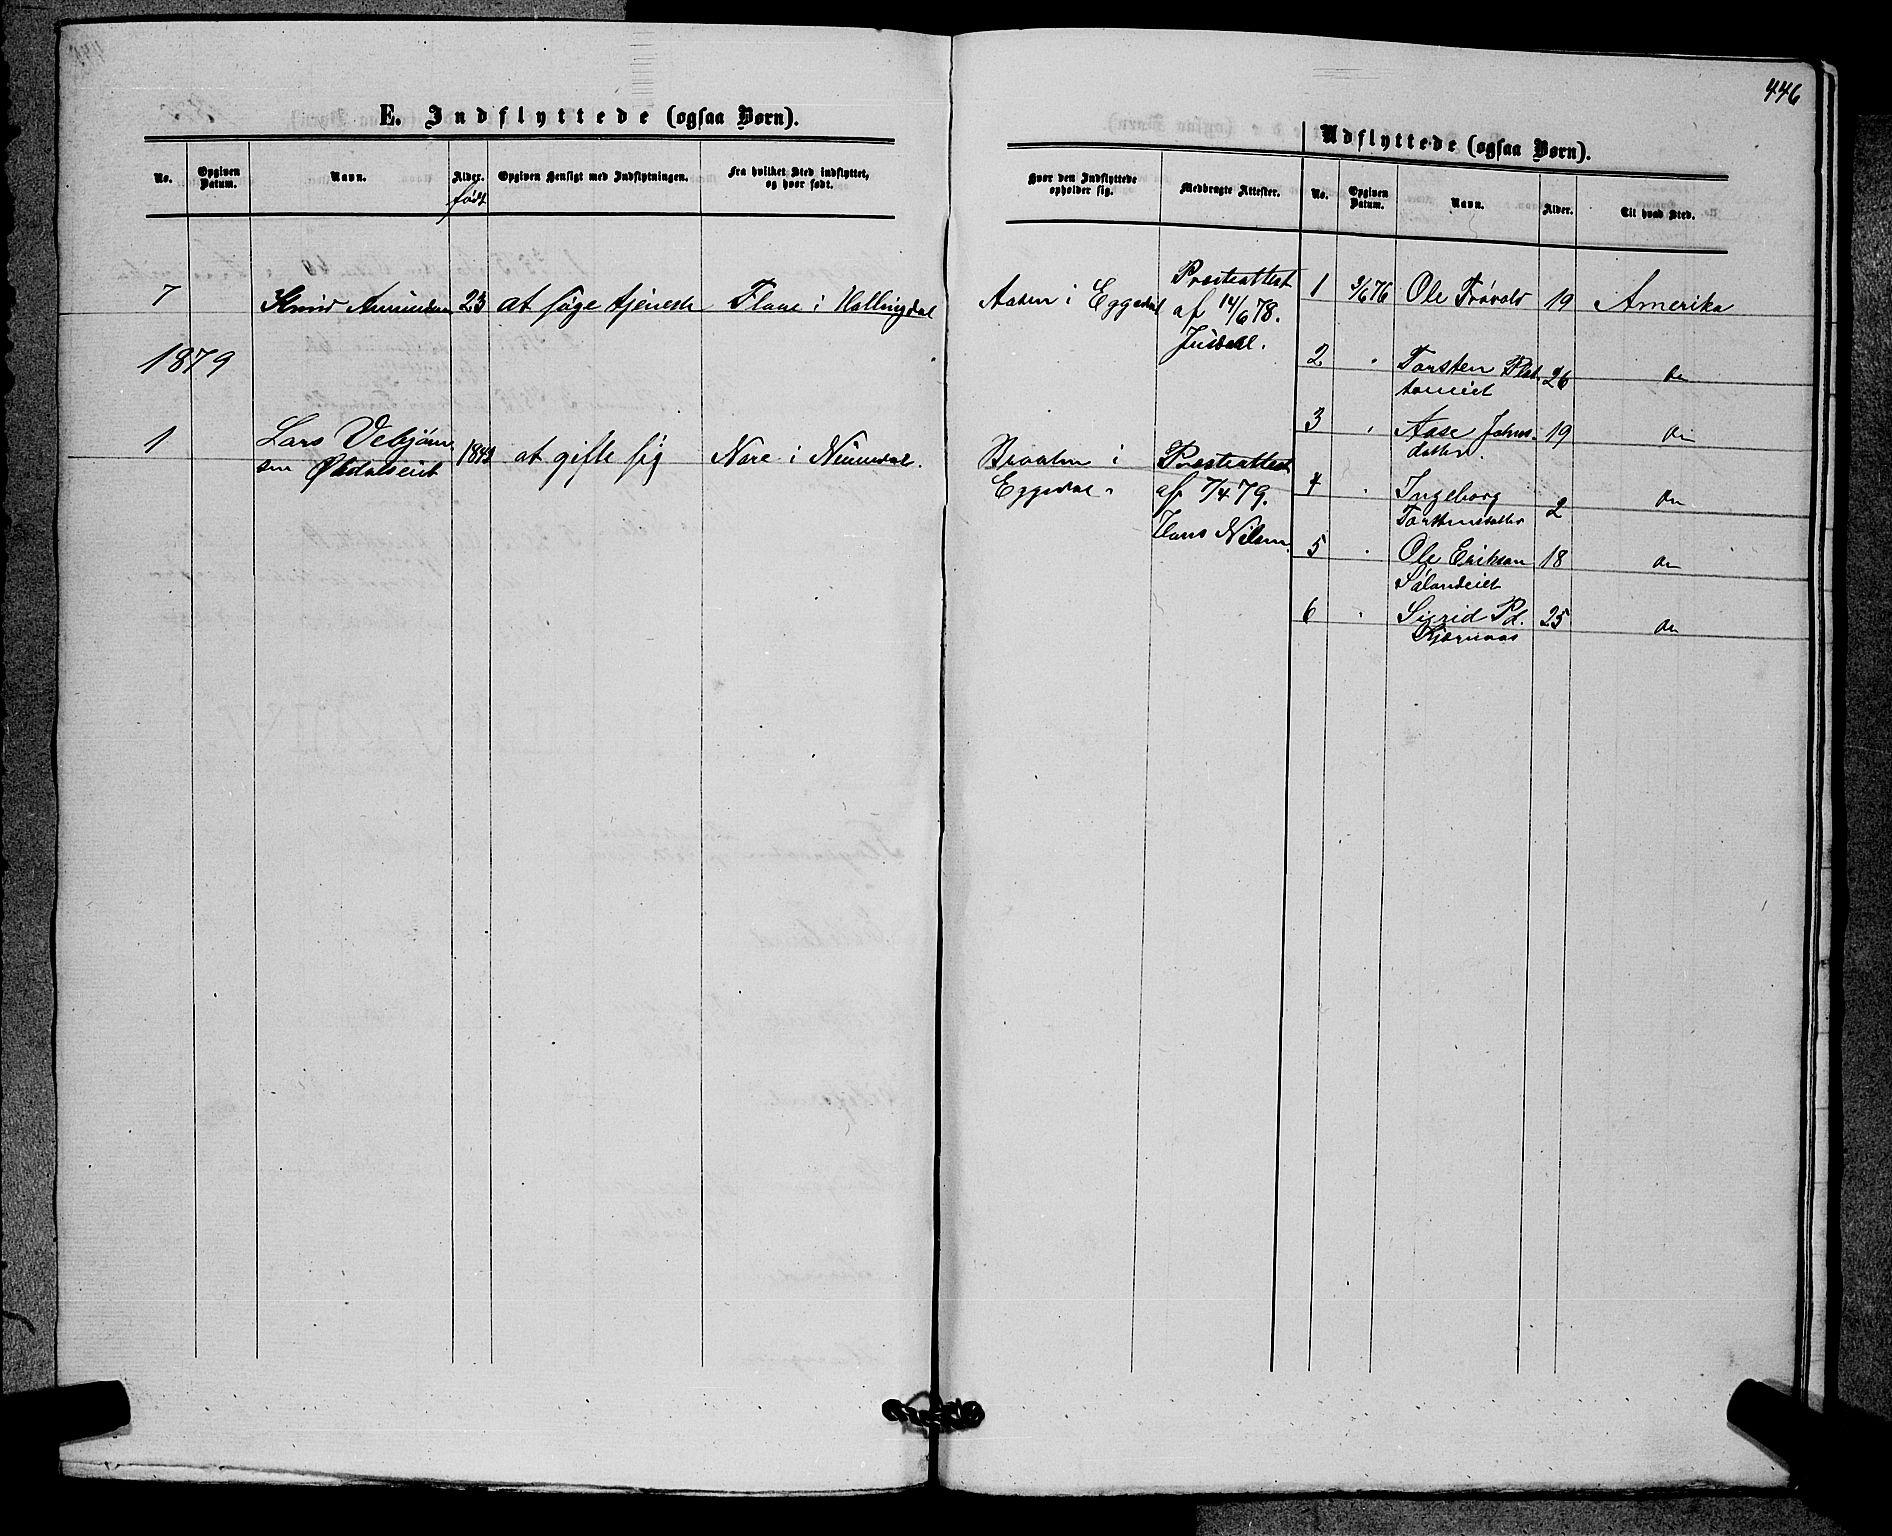 446
E. Indflyttede (ogsaa Børn).
No. Opgiven Datum. Navn. Alder. født Opgiven Hensigt med Indflytningen. Fra hvilket Sted indflyttet, og hvor født.
7 Knud Amundsen 23 at søge tjeneste Flaae i Hallingdal
1879
1 Lars Vebjørn-
sen 1843 at gifte sig Nore i Numedal.
Udflyttede (ogsaa Børn).
Hvor den Indflyttede opholder sig. Medbragte Attester. No. Opgiven Datum. Navn. Alder. Til hvad Sted.
Aasen i Eggedal Præsteattest
af 14/6 78.
Braaten i
Eggedal. Præsteattest
af 7/4 79.
Hans Nilsen.
1 2/6 76 Ole Frøvold 19 Amerika
2 " Torsten Plat-
toneiet 26 do
3 " Aase Johns-
datter. 19 do
4 " Ingeborg
Torstensdatter 2 do
5 " Ole Erikson
Sølandeiet 18 do
6 " Sigrid Pd.
Kjærnaas 25 do